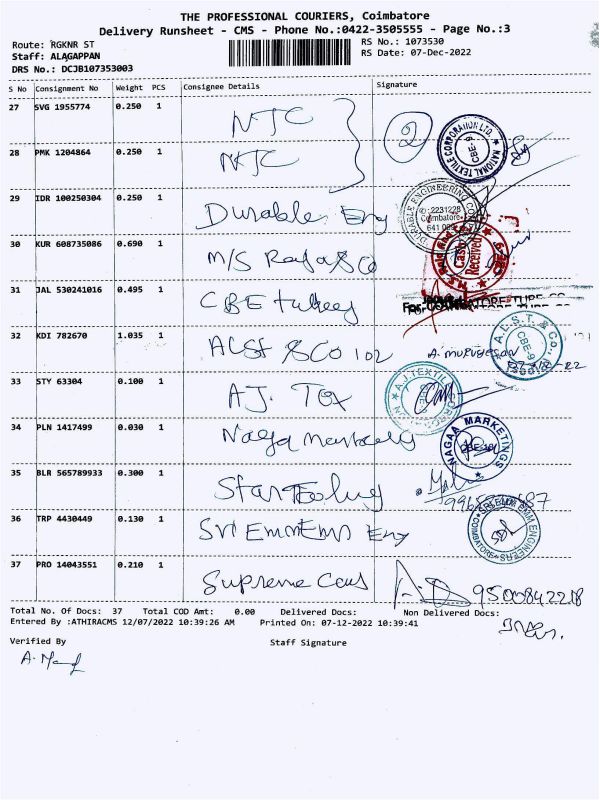 THE PROFESSIONAL COURIERS, Coimbatore
Delivery Runsheet - CMS - Phone No.:0422-3505555 - Page No.:3
Route: RGKNR ST
Staff: ALAGAPPAN
DRS No.: DCJB107353003
RS No.: 1073530
RS Date: 07-Dec-2022
S No Consignment No Weight PCS Consignee Details Signature
27 SVG 1955774 0.250 1 NTC 2
NATIONAL TEXTILE CORPORATION LTD. CBE-9
28 PMK 1204864 0.250 1 NTC
29 IDR 100250304 0.250 1 Durable Eng
DURABLE ENGINEERING CO 2231228 Coimbatore 641 009
30 KUR 608735086 0.690 1 M/S Raja & Co
Received
31 JAL 530241016 0.495 1 CBE
32 KDI 782670 1.035 1 ALST & CO 102 A. murugesan
A.L.S.T. & Co., CBE-9
33 STY 63304 0.100 1 A.J. Tex
A.J.TEXTILE CORPORATION CBE
34 PLN 1417499 0.030 1 Naga
NAGAA MARKETINGS
35 BLR 565789933 0.300 1
36 TRP 4430449 0.130 1 Sri EmmEmm Eng
SRI EMM EMM ENGINEERS COIMBATORE
37 PRO 14043551 0.210 1 Supreme 9500842218
Total No. Of Docs: 37 Total COD Amt: 0.00 Delivered Docs: Non Delivered Docs:
Entered By :ATHIRACMS 12/07/2022 10:39:26 AM Printed On: 07-12-2022 10:39:41
Verified By Staff Signature